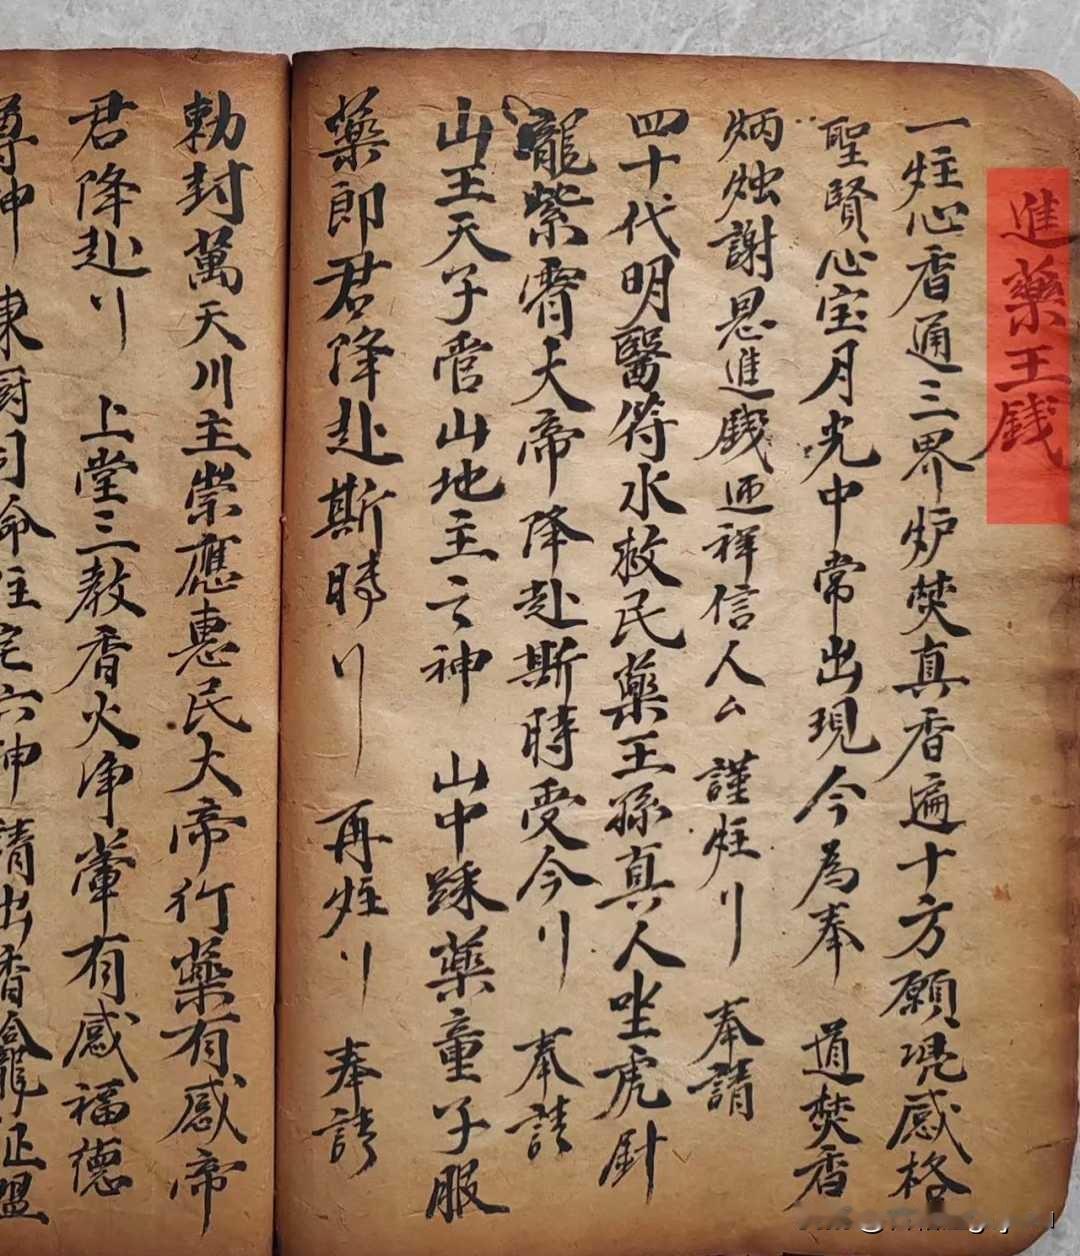 進藥王錢
一炷心香通三界炉焚真香遍十方願凴感格
聖賢心宝月光中常出現今為奉 道焚香
炳烛謝恩進錢迊祥信人厶 謹炷〢 奉請
四十代明醫符水救民藥王孫真人坐虎針
龍紫霄大帝降赴斯時受今〢 奉請
山王天子管山地主之神 山中踩藥童子服
藥郎君降赴斯時〢 再炷〢 奉請
勅封萬天川主崇應惠民大帝行藥有感帝
君降赴〢 上堂三教香火净輩有感福德
尊神 東厨司命住宅六神 請出香龕证盟